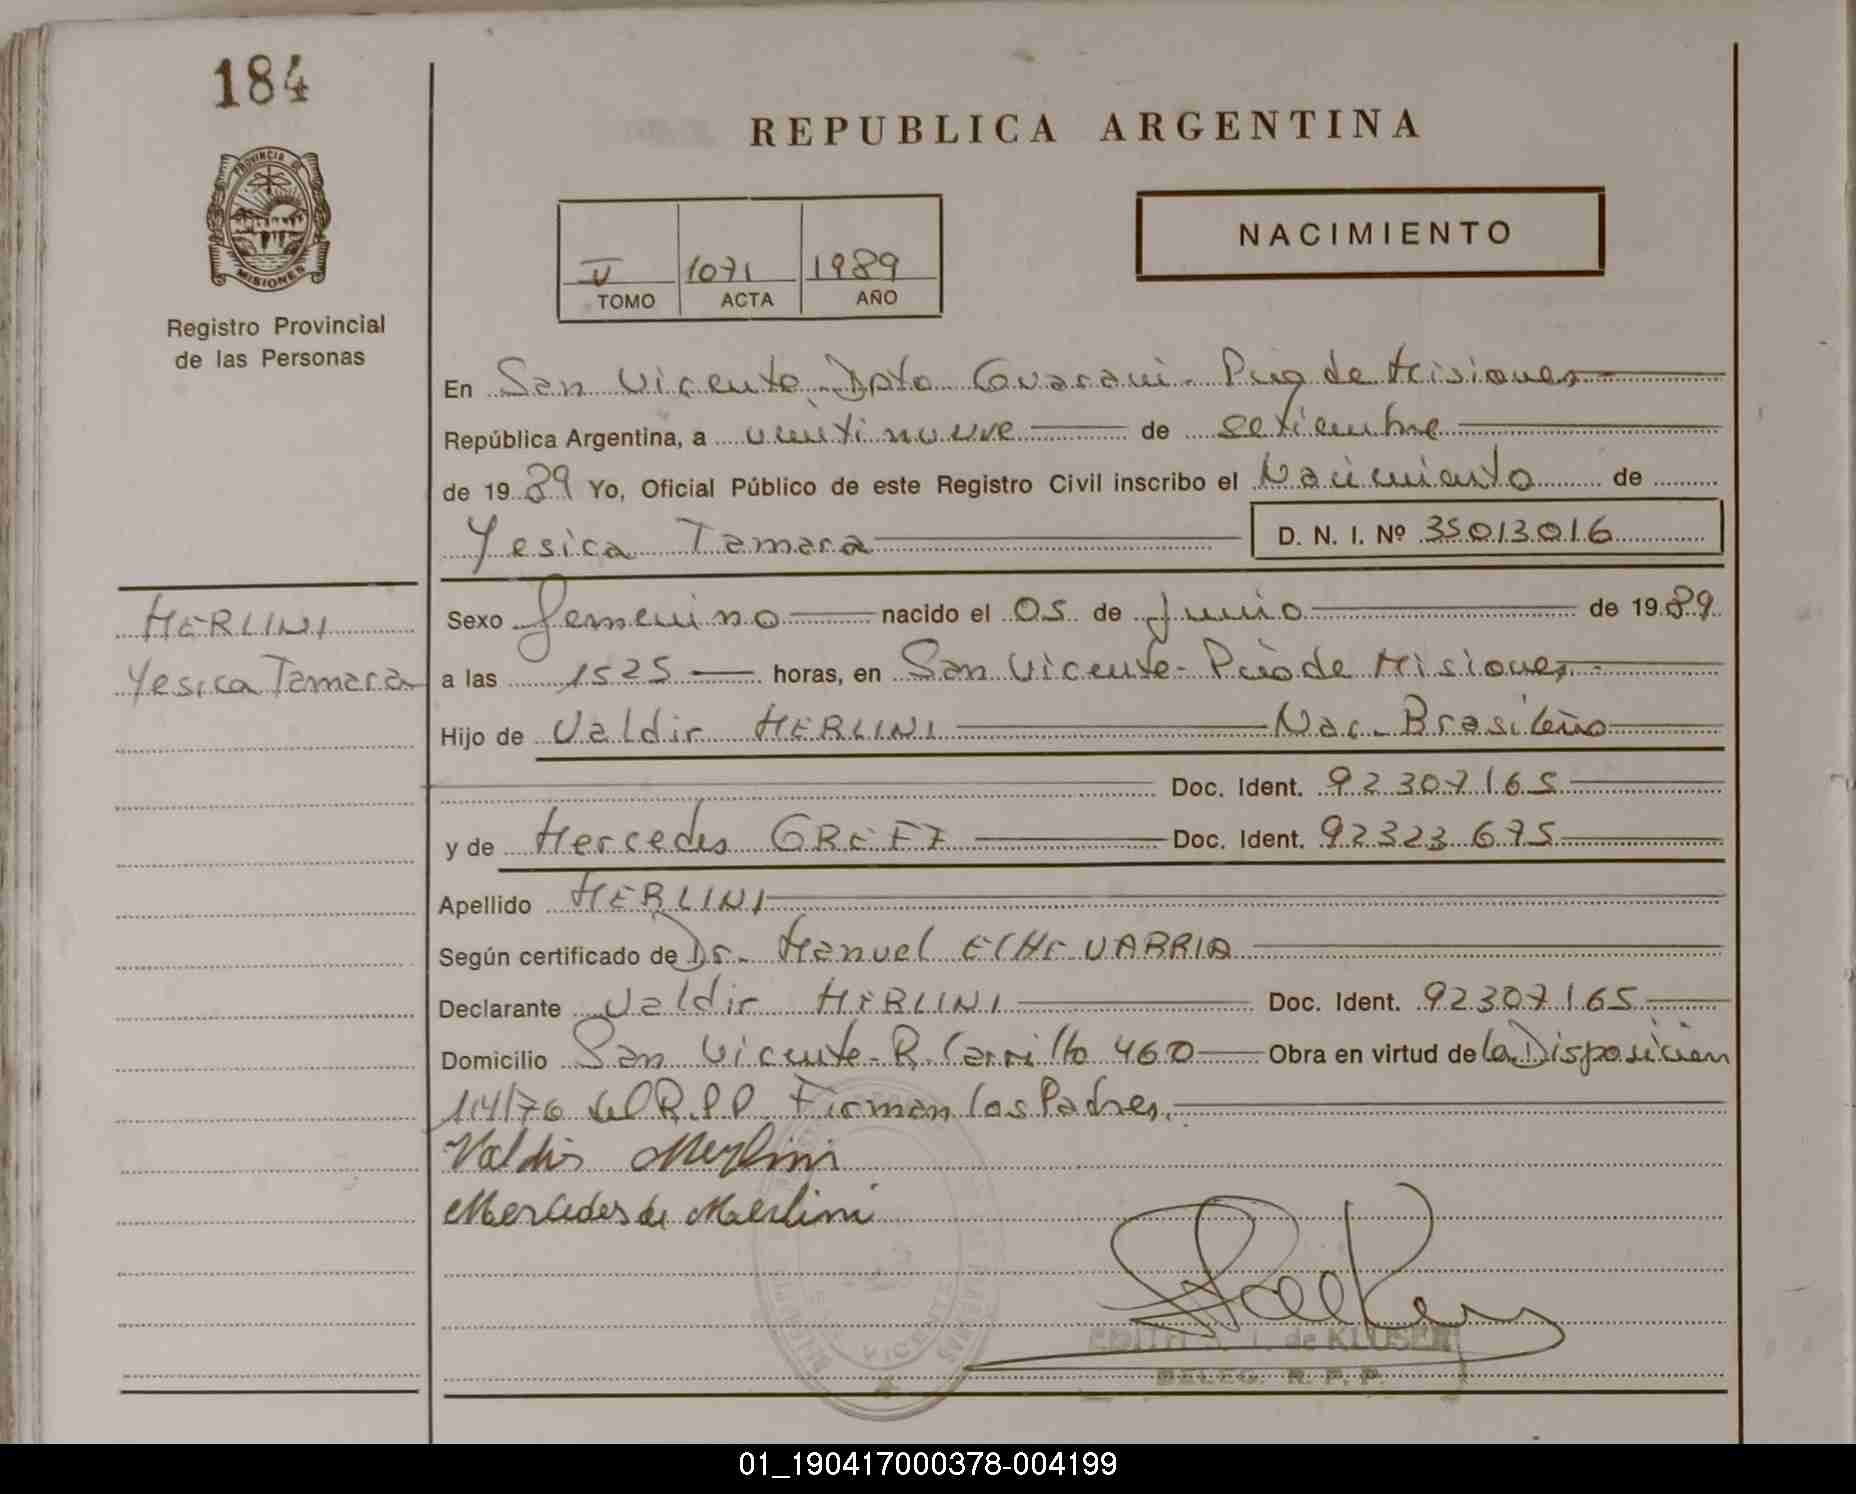 184
PROVINCIA DE
MISIONES
Registro Provincial
de las Personas
REPUBLICA ARGENTINA
V 1071 1989
TOMO ACTA AÑO
NACIMIENTO
En San Vicente Dpto Guarani - Pcia de Misiones
República Argentina, a veinti nueve de setiembre
de 1989 Yo, Oficial Público de este Registro Civil inscribo el Nacimiento de
Yesica Tamara D. N. I. Nº 35013016
MERLINI
Yesica Tamara
Sexo femenino nacido el 05 de Junio de 1989
a las 1525 horas, en San Vicente - Pcia de Misiones
Hijo de Valdir MERLINI Nac. Brasileño
Doc. Ident. 92307165
y de Mercedes Doc. Ident. 92323695
Apellido MERLINI
Según certificado de Dr. Manuel ECHEVARRIA
Declarante Valdir MERLINI Doc. Ident. 92307165
Domicilio San Vicente - R. Carrillo 460 Obra en virtud de la Disposicion
114/76 del R.P.P. Firman los Padres.
Valdir Merlini
Mercedes de Merlini
VICENTE
EDITH de KLUSEN
DELEG. R. P. P.
01_190417000378-004199